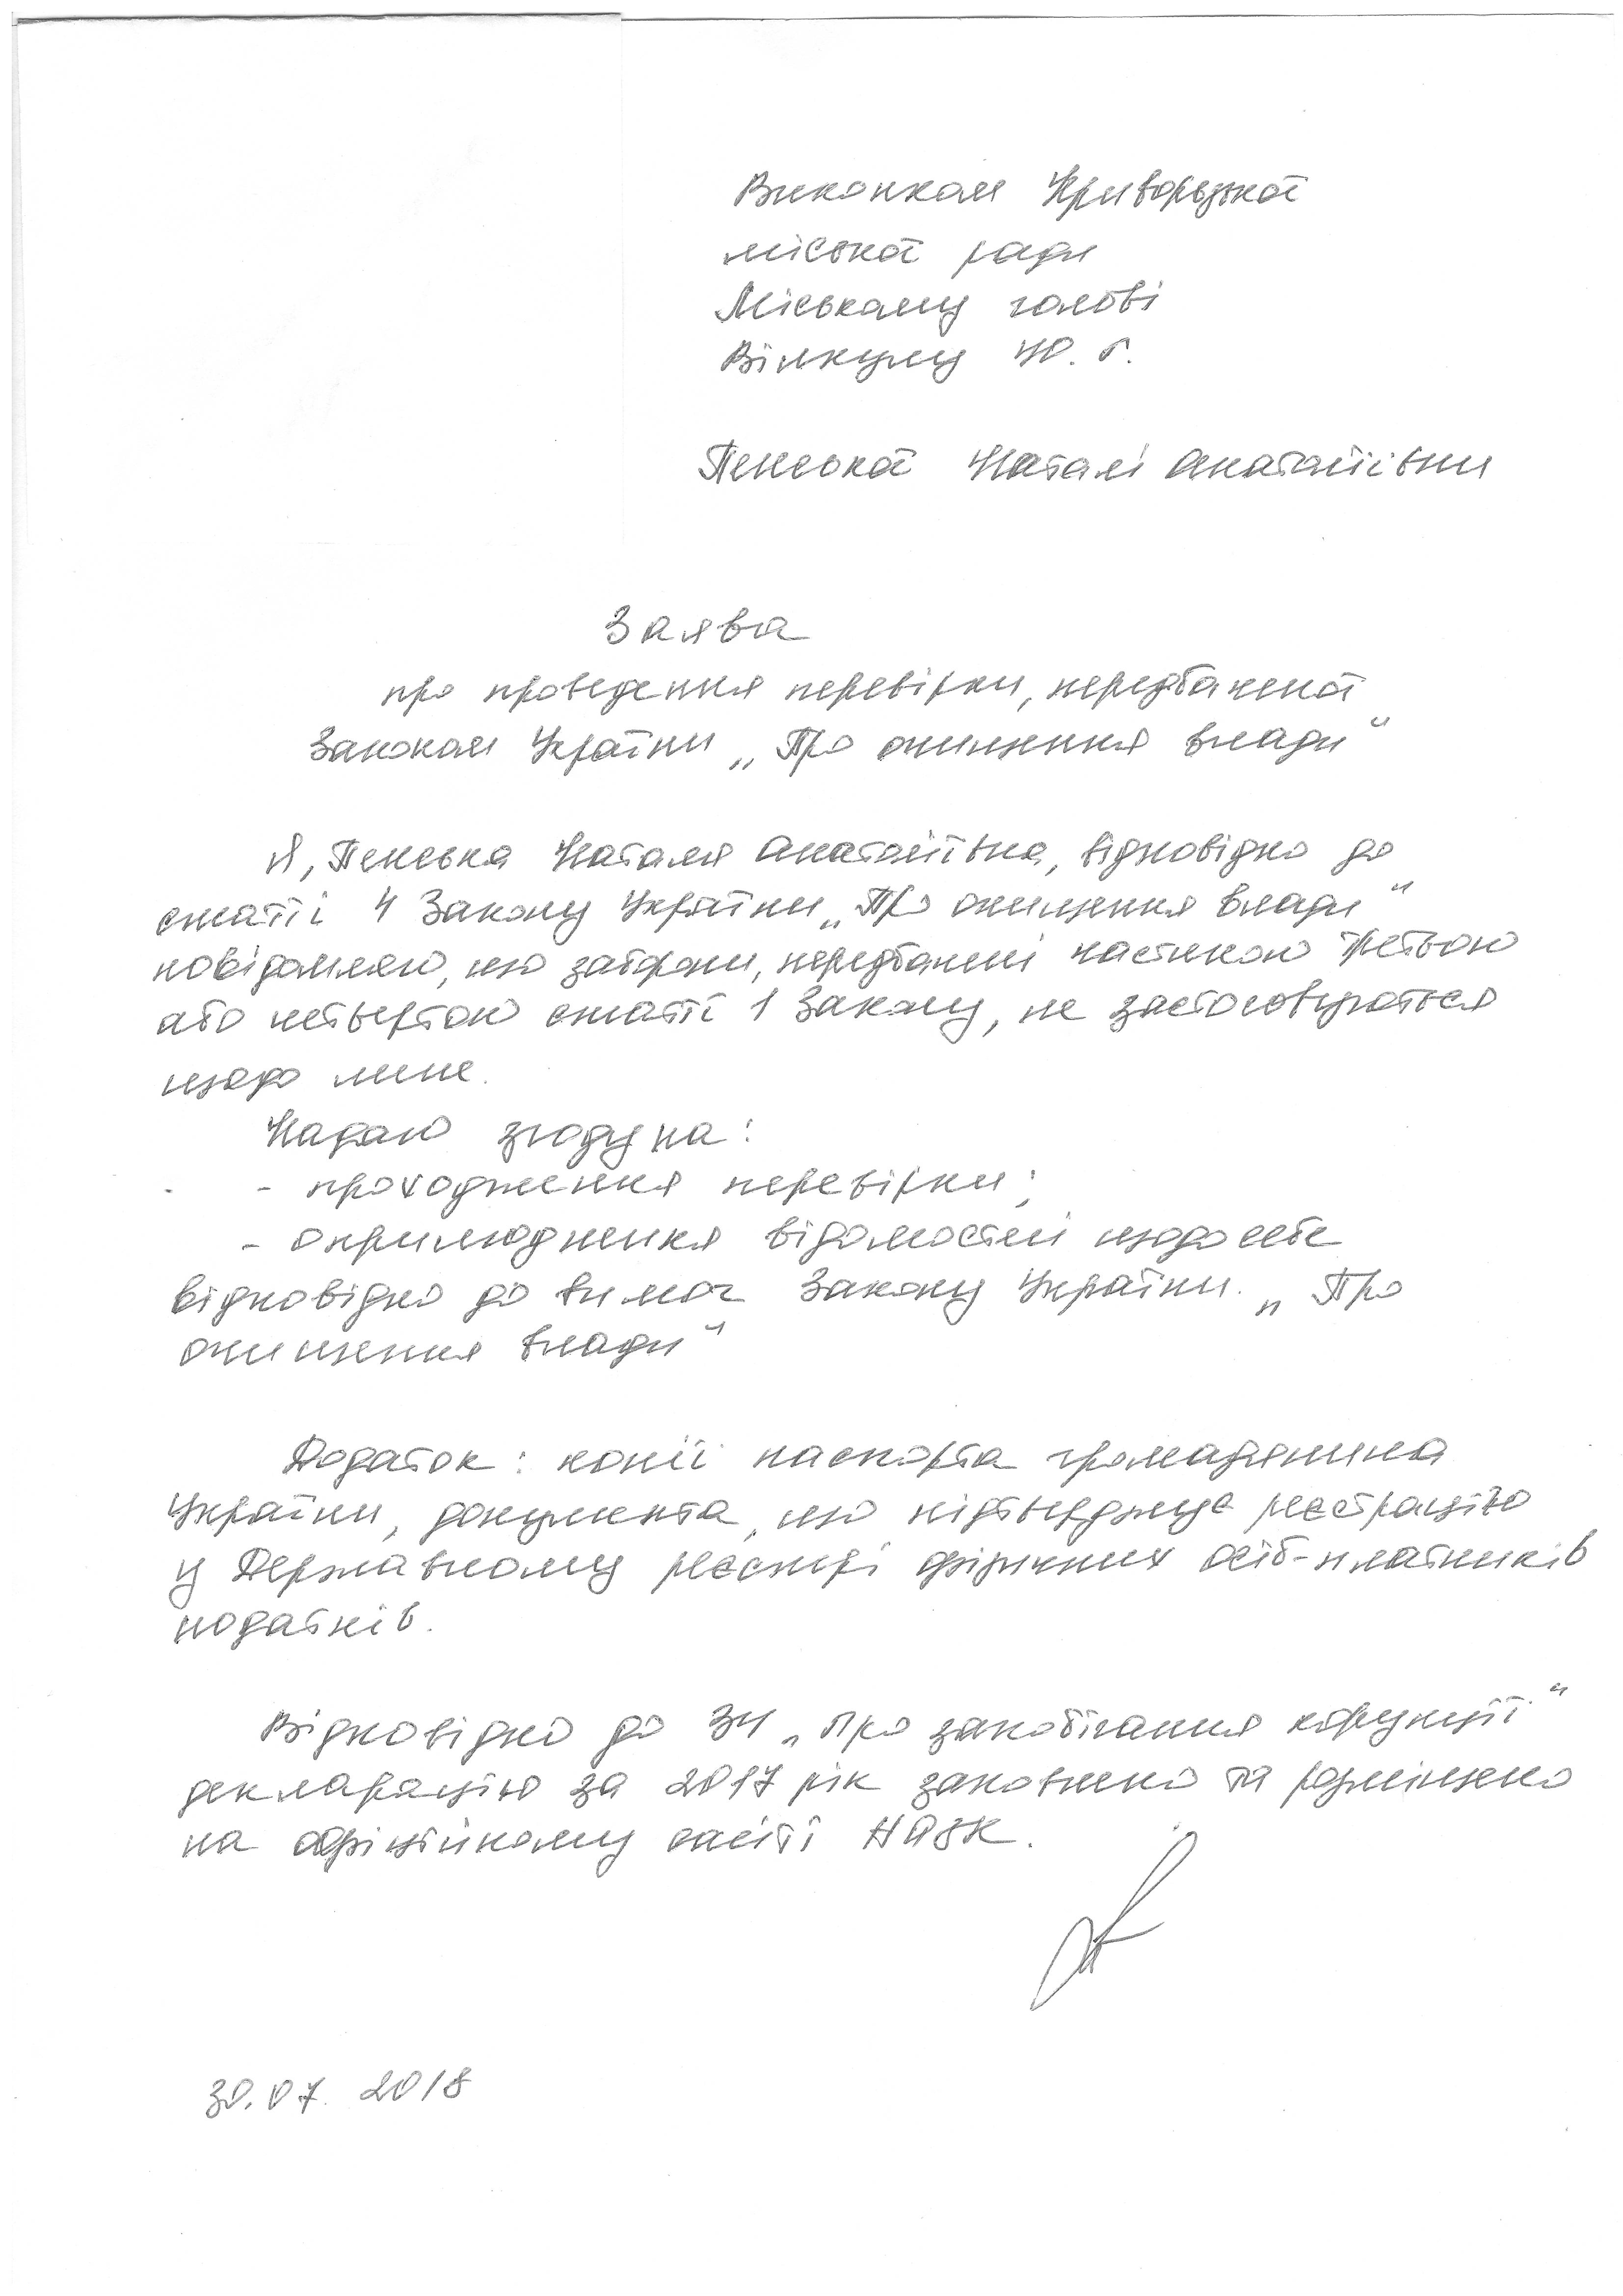 Виконком Криворізької
міської ради
Міському голові
Вілкулу Ю. Г.
Пенської Наталі Анатоліївни
Заява
про проведення перевірки, передбаченої
Законом України „Про очищення влади“
Я, Пенська Наталя Анатоліївна, відповідно до
статті 4 Закону України „Про очищення влади“
повідомляю, що заборони, передбачені частиною третьою
або четвертою статті 1 Закону, не застосовуються
щодо мене.
Надаю згоду на:
- проходження перевірки;
- оприлюднення відомостей щодо себе
відповідно до вимог Закону України. „Про
очищення влади“
Додаток: копії паспорта громадянина
України, документа, що підтверджує реєстрацію
у Державному реєстрі фізичних осіб-платників
податків.
Відповідно до ЗУ „Про запобігання корупції“
декларацію за 2017 рік заповнено та розміщено
на офіційному сайті НАЗК.
30.07.2018